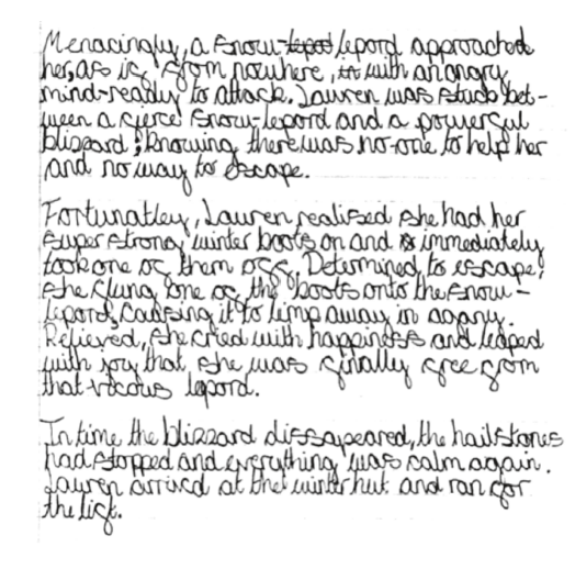 Menacingly, a snow-lepord approached
her, as if from nowhere, with an angry
mind-ready to attack. Lauren was stuck bet-
ween a fierce snow-lepord and a powerful
blizzard; knowing there was no-one to help her
and no way to escape.
Fortunatley, Lauren realised she had her
super strong winter boots on and immediately
took one of them off. Determined to escape,
she flung one of the boots onto the snow-
lepord, causing it to limp away in agany.
Relieved, she cried with happiness and leaped
with joy that she was finally free from
that vicous lepord.
In time the blizzard dissapeared, the hailstones
had stopped and everything was calm again.
Lauren arrived at the winter hut and ran for
the lift.